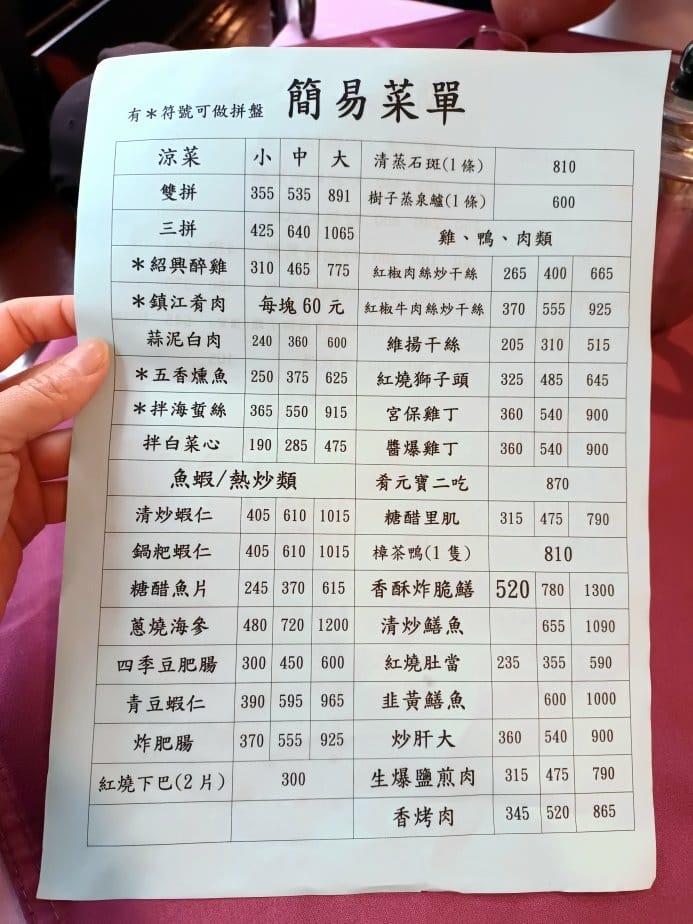 有＊符號可做拼盤 簡易菜單
涼菜 小 中 大
雙拼 355 535 891
三拼 425 640 1065
＊紹興醉雞 310 465 775
＊鎮江肴肉 每塊60元
蒜泥白肉 240 360 600
＊五香燻魚 250 375 625
＊拌海蜇絲 365 550 915
拌白菜心 190 285 475
魚蝦/熱炒類
清炒蝦仁 405 610 1015
鍋粑蝦仁 405 610 1015
糖醋魚片 245 370 615
蔥燒海參 480 720 1200
四季豆肥腸 300 450 600
青豆蝦仁 390 595 965
炸肥腸 370 555 925
紅燒下巴(2片) 300
清蒸石斑(1條) 810
樹子蒸泉鱸(1條) 600
雞、鴨、肉類
紅椒肉絲炒干絲 265 400 665
紅椒牛肉絲炒干絲 370 555 925
維揚干絲 205 310 515
紅燒獅子頭 325 485 645
宮保雞丁 360 540 900
醬爆雞丁 360 540 900
肴元寶二吃 870
糖醋里肌 315 475 790
樟茶鴨(1隻) 810
香酥炸脆鱔 520 780 1300
清炒鱔魚 655 1090
紅燒肚當 235 355 590
韭黃鱔魚 600 1000
炒肝大 360 540 900
生爆鹽煎肉 315 475 790
香烤肉 345 520 865